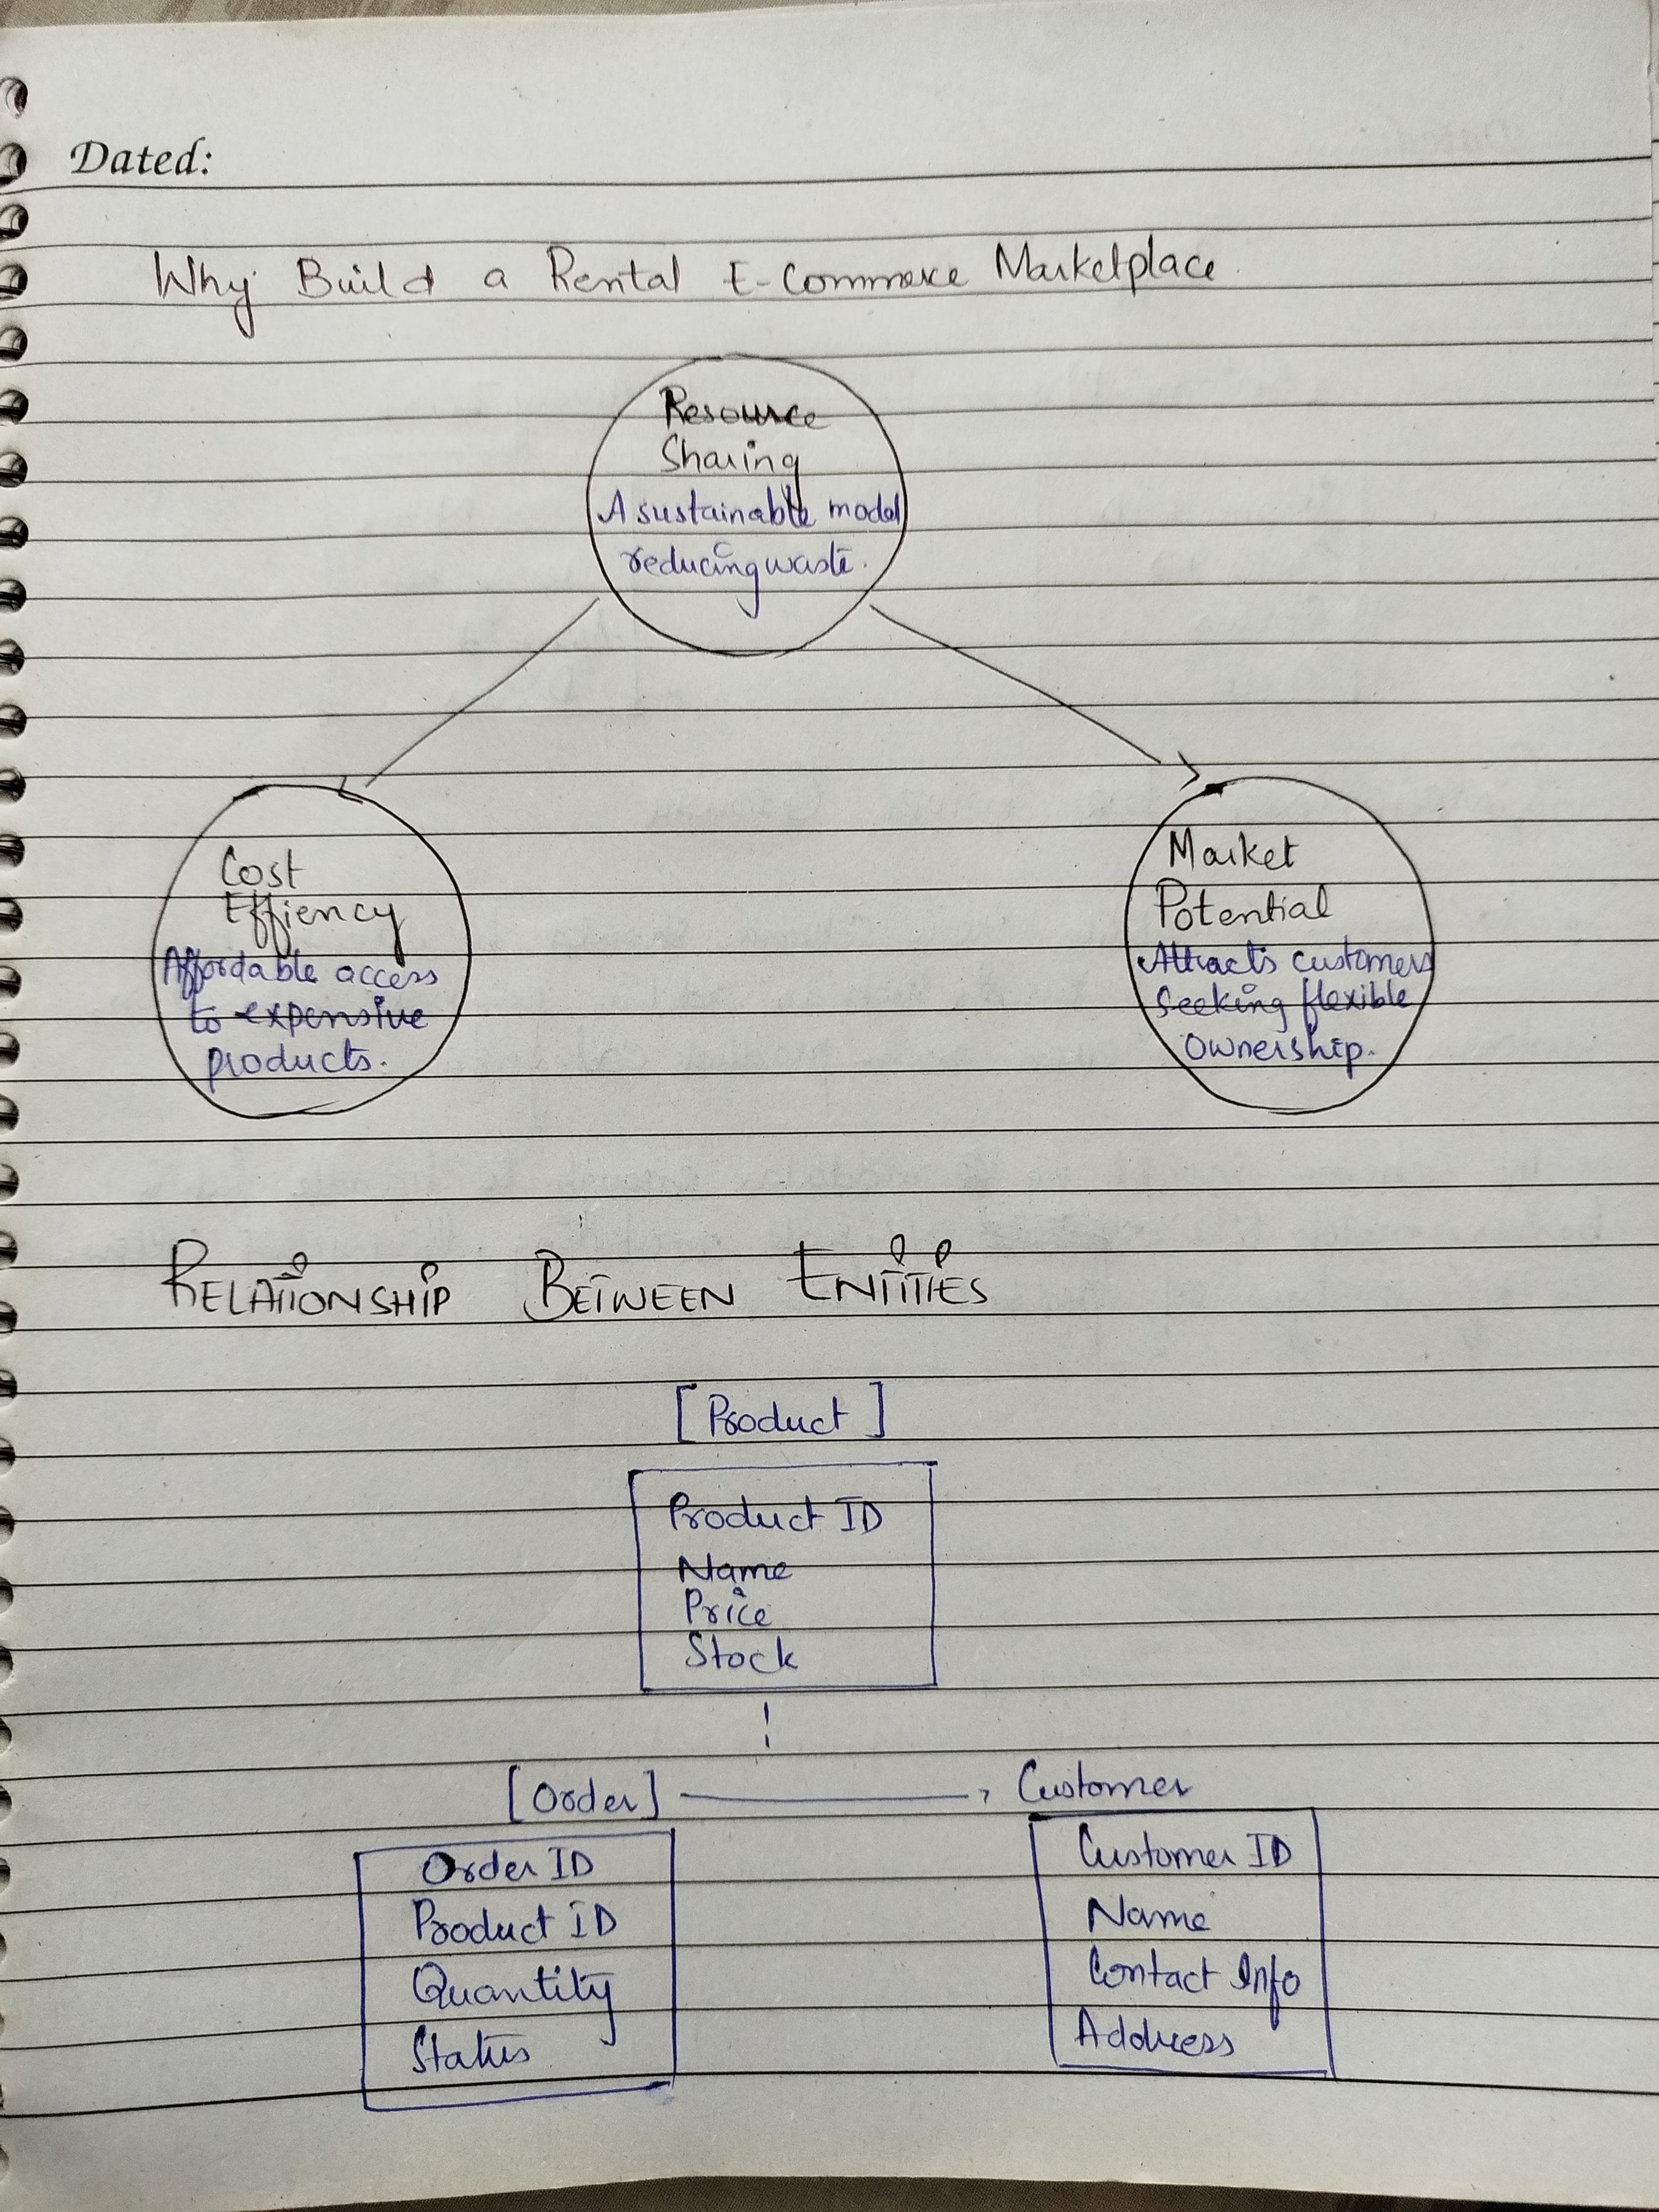 Dated:
Why Build a Rental E-Commerce Marketplace.
Resource
Sharing
A sustainable model
reducing waste.
Cost
Effiency
Affordable access
to expensive
products.
Market
Potential
Attracts customers
Seeking flexible
Ownership.
RELATIONSHIP BETWEEN ENTITIES
[Product]
Product ID
Name
Price
Stock
[Order]
Customer
Order ID
Product ID
Quantity
Status
Customer ID
Name
Contact Info
Address